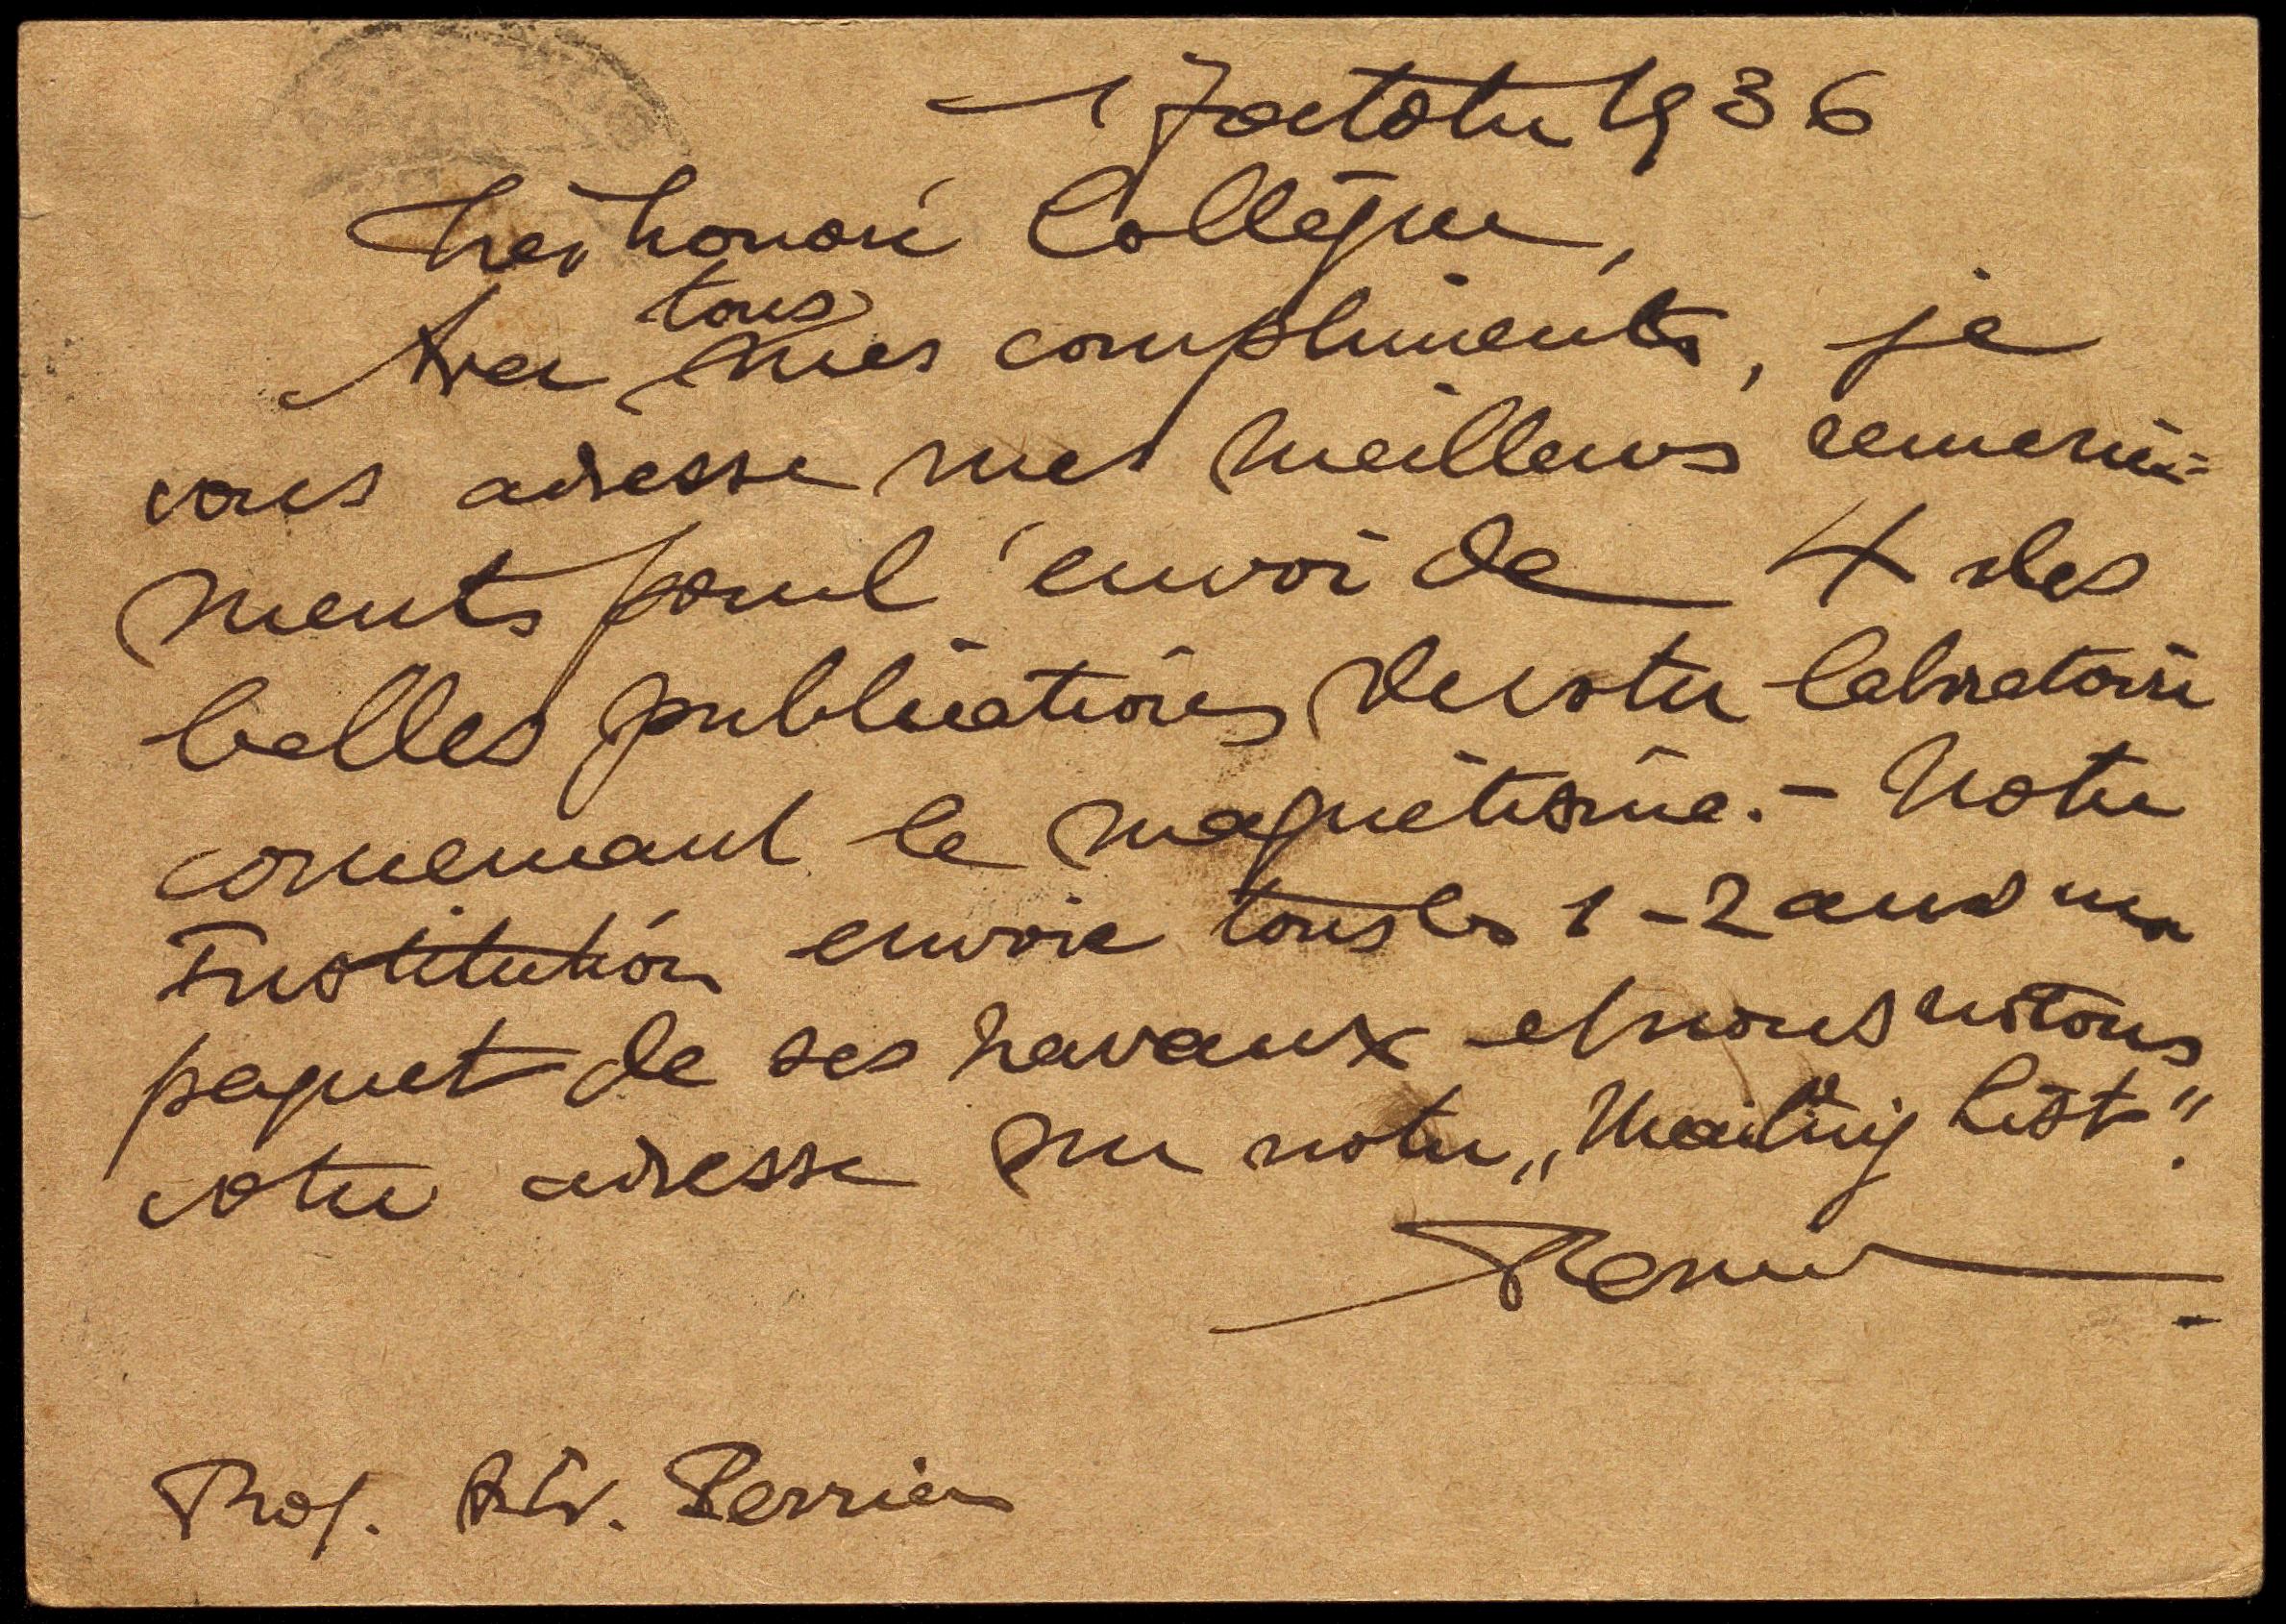 17 octobre 1936
Très honoré Collègue,
Avec tous mes compliments, je
vous adresse mes meilleurs remercie=
ments pour l'envoi de 4 des
belles publications de votre laboratoire
concernant le magnétisme. - Notre
Institution envoie tous les 1-2 ans un
paquet de ses travaux et nous notons
votre adresse sur notre „Mailing List".
Prof. Alb. Perrier